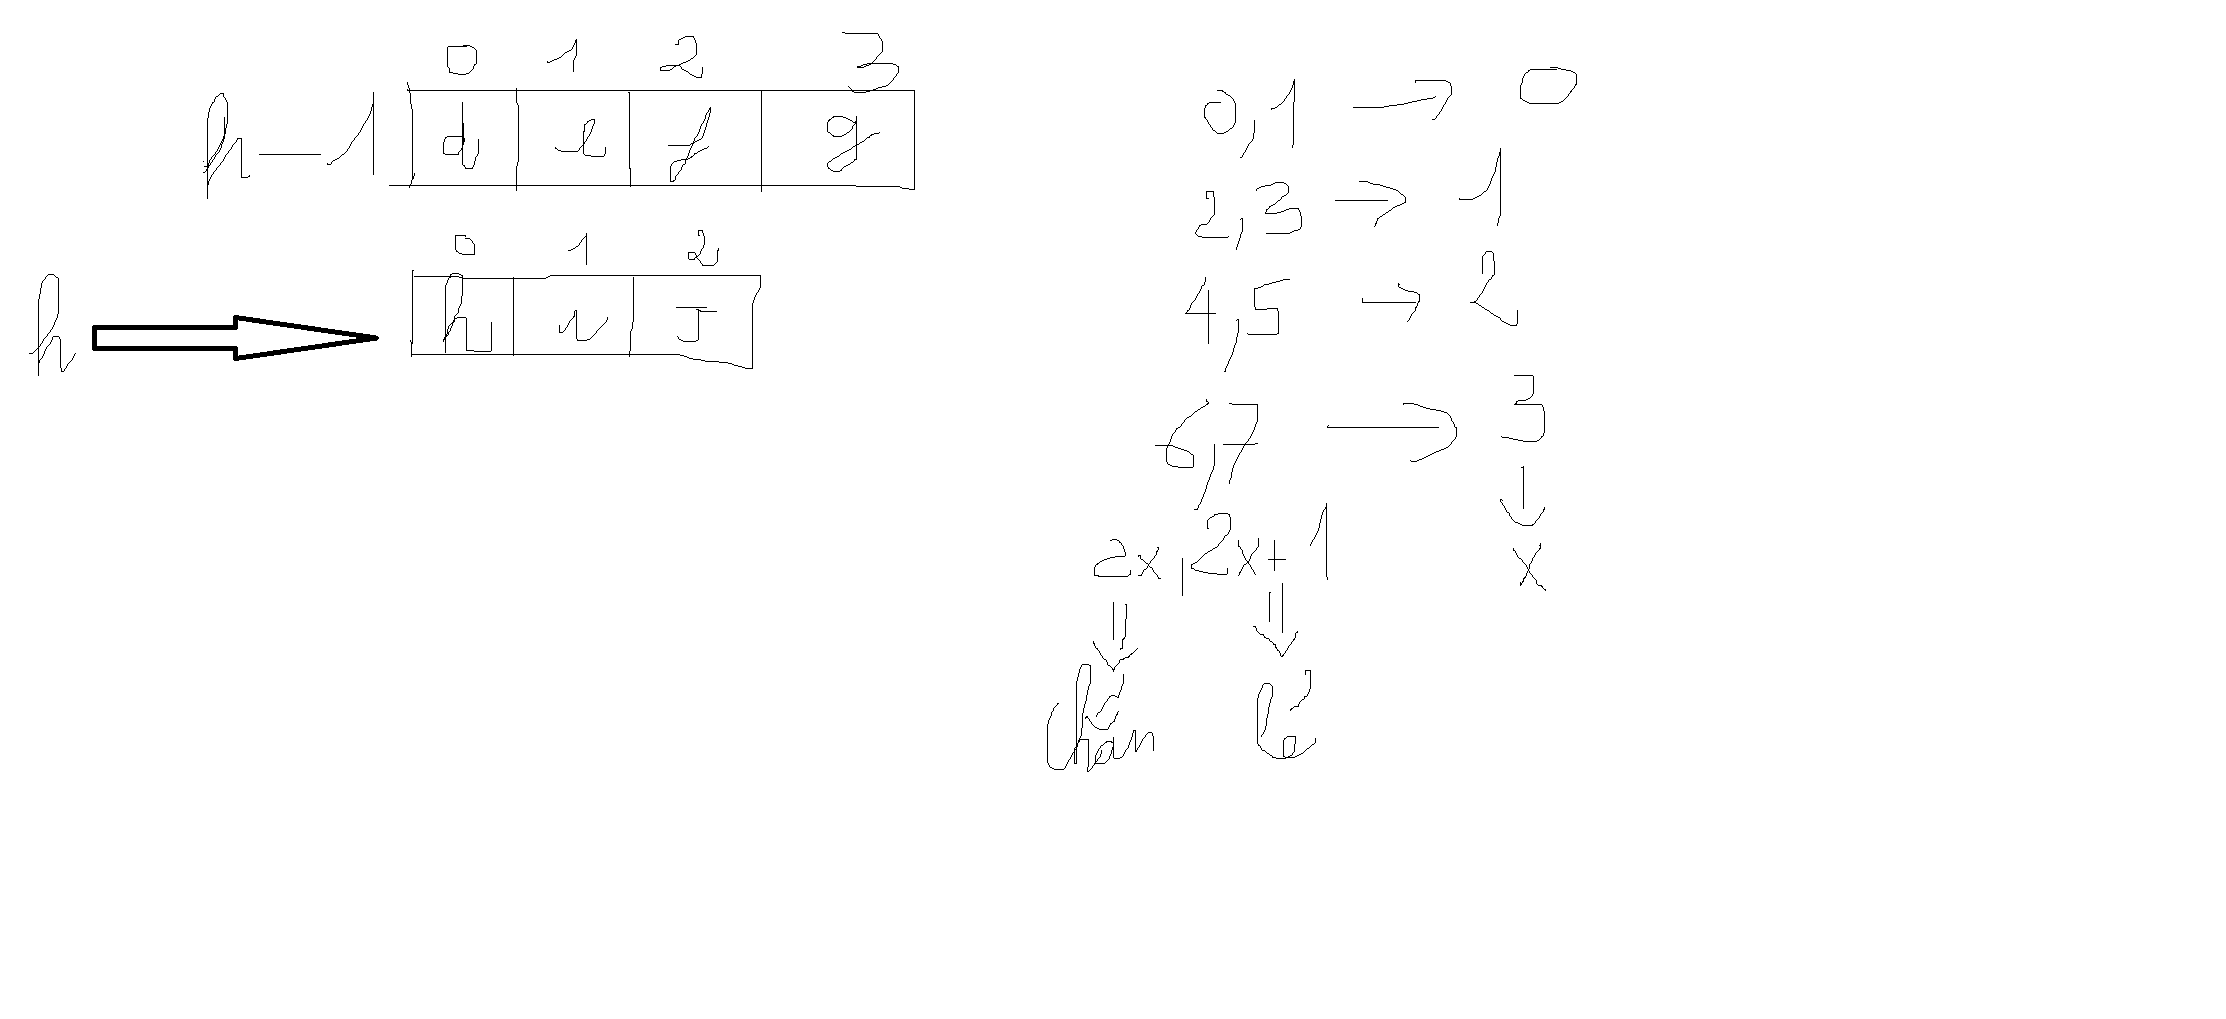 0 1 2 3
h-1 d e f g
0 1 2
h h i J
0,1 → 0
2,3 → 1
4,5 → 2
6,7 → 3
2x,2x+1 x
chẵn lẻ